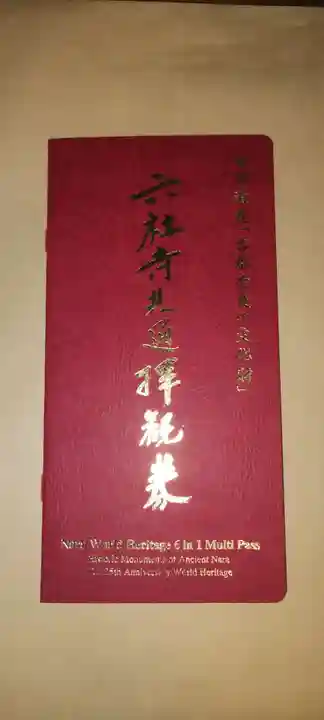 世界遺産「古都奈良の文化財」
六社寺共通拝観券
Nara World Heritage 6 in 1 Multi Pass
Historic Monuments of Ancient Nara
25th Anniversary World Heritage